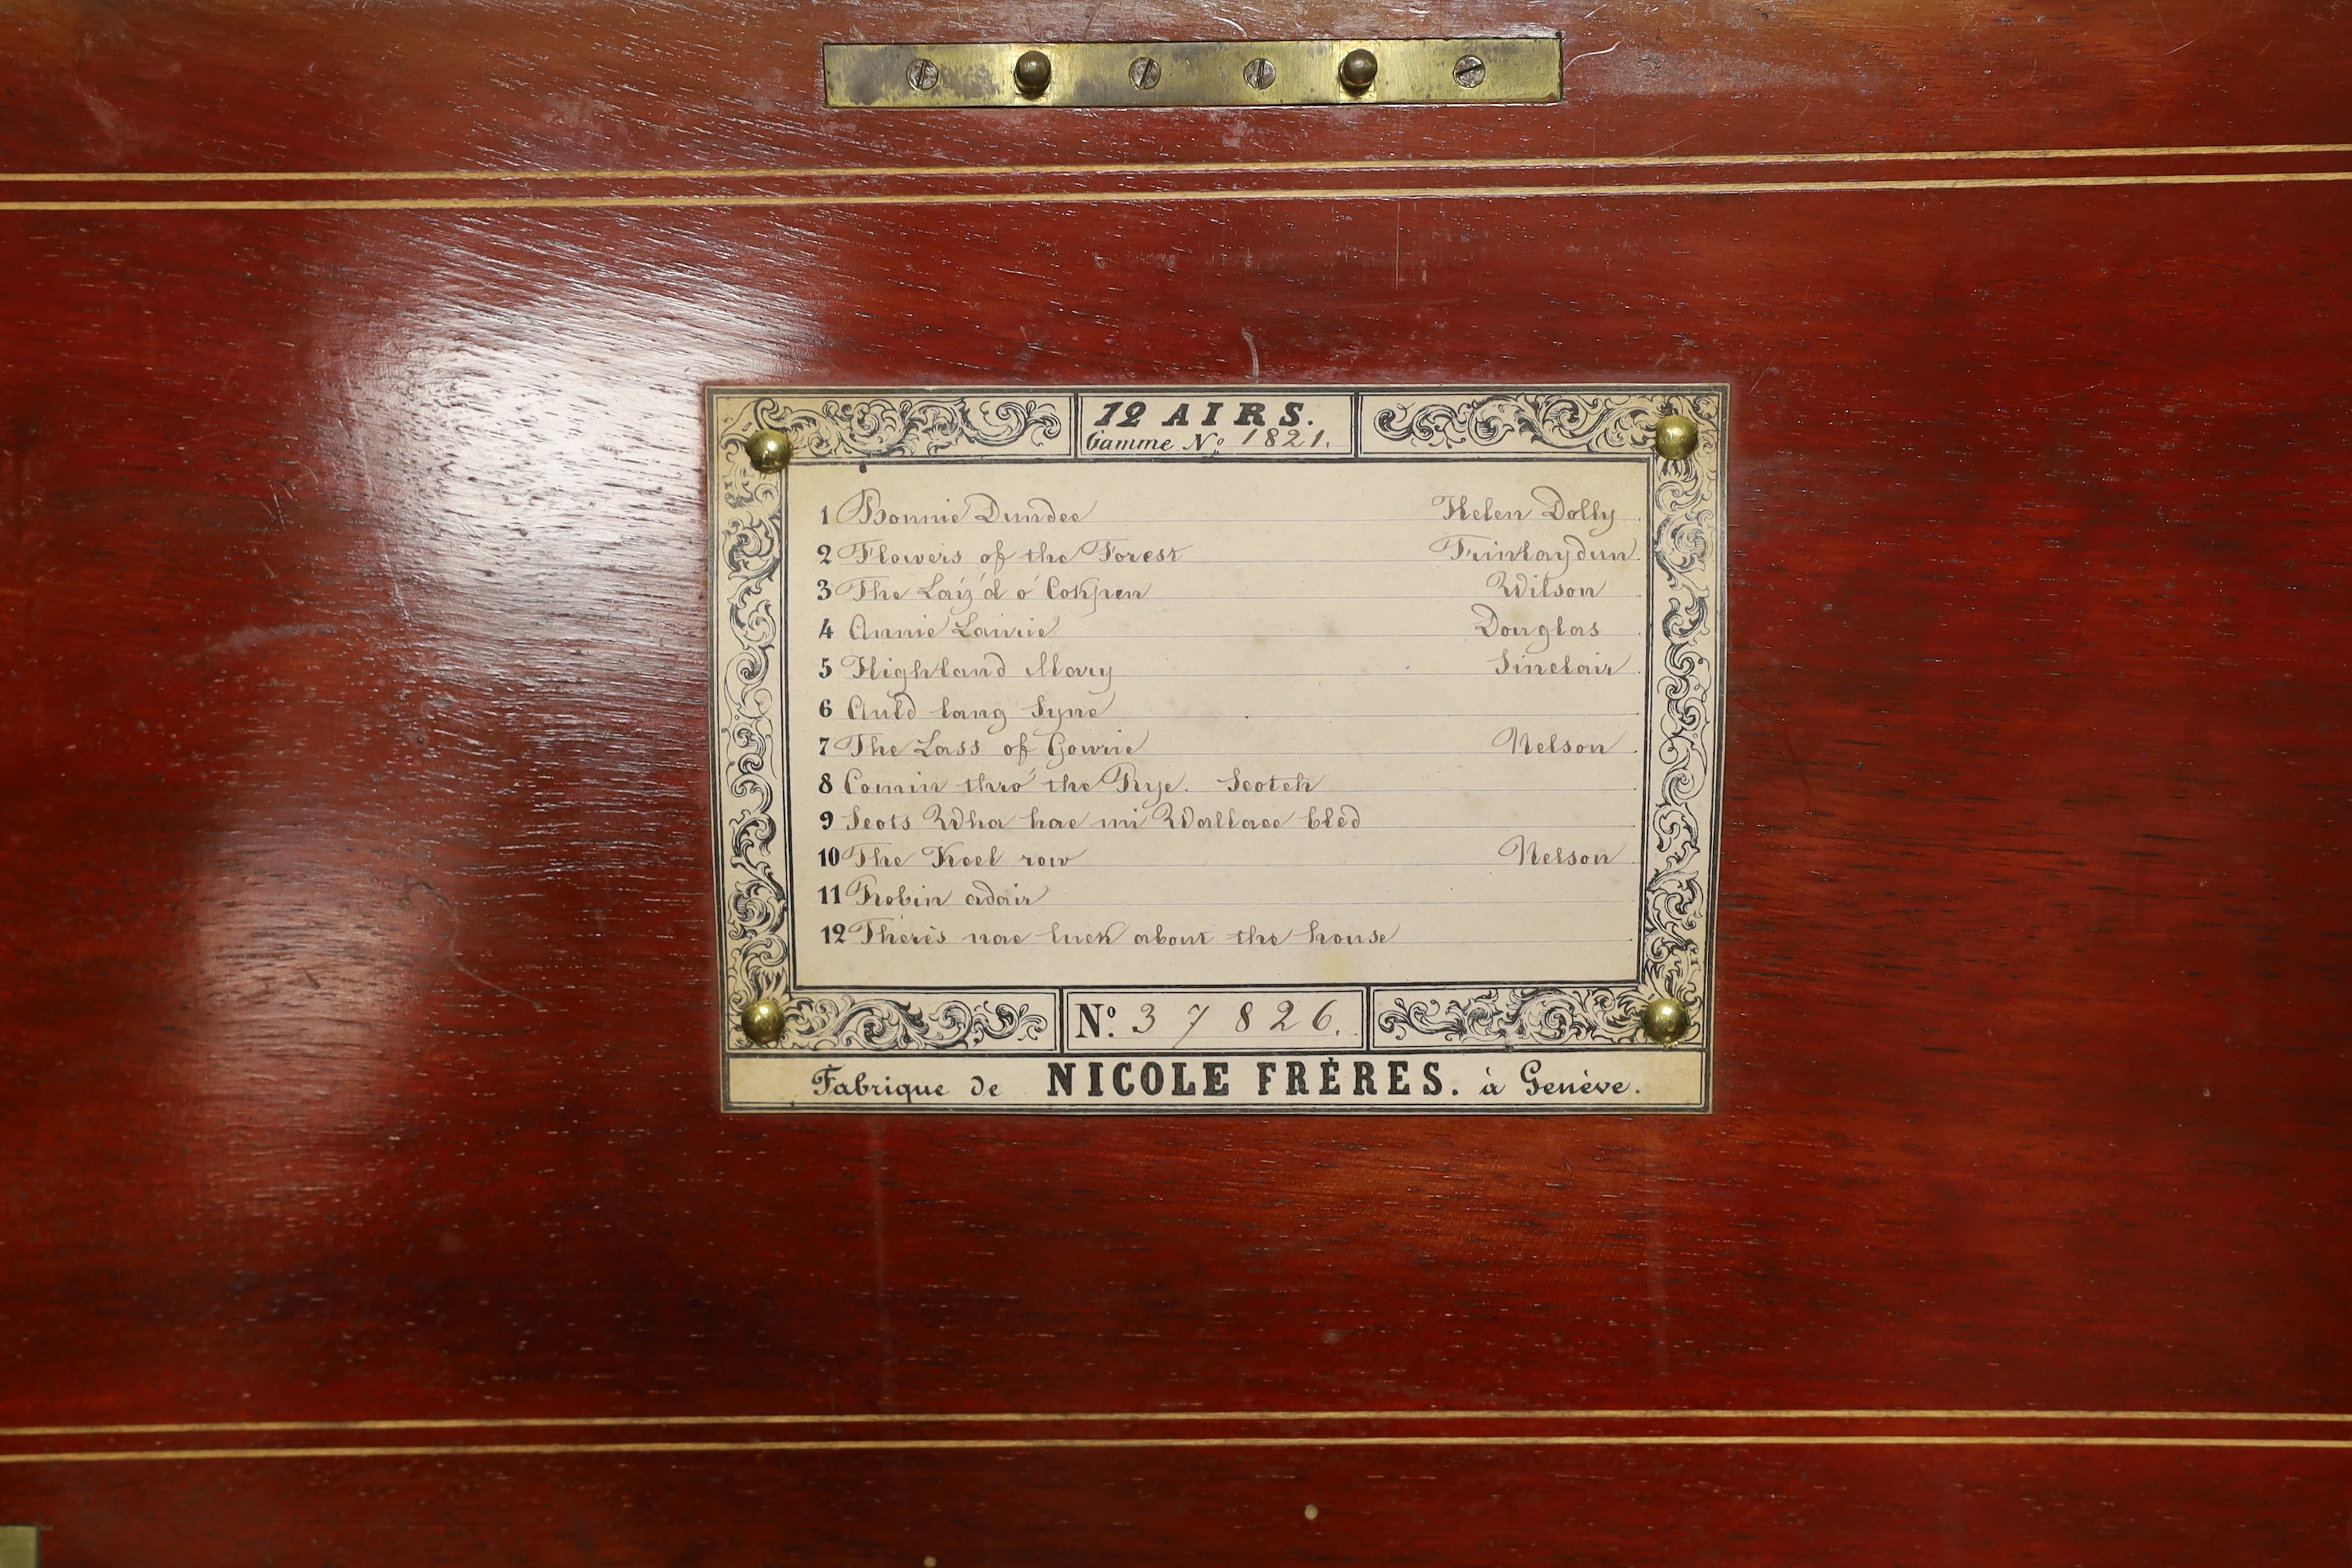 12 AIRS.
Gamme No. 1821.
1 Bonnie Dundee Helen Dolly
2 Flowers of the Forest
3 The Lair'd o' Cokpen Wilson
4 Annie Laurie Douglas
5 Highland Mary Sinclair
6 Auld lang Syne
7 The Lass of Gowrie Nelson
8 Comin thro' the Rye. Scotch
9 Scots Wha hae wi Wallace bled
10 The Keel row Nelson
11 Robin adair
12 There's nae luck about the house
No. 37826.
Fabrique de NICOLE FRÈRES. à Genève.